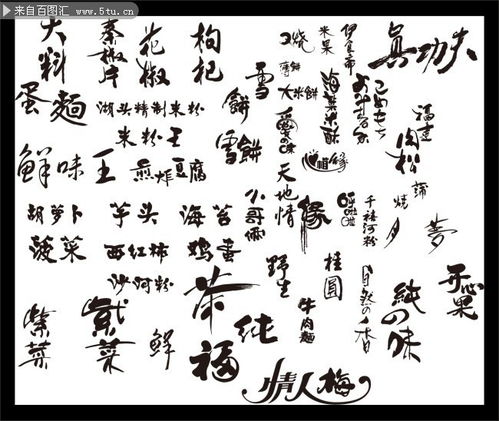 来自百图汇 www.5tu.cn
大料
秦椒片
花椒
枸杞
烧
米果
伊食布
真功夫
蛋麵
湖头精制米粉
米粉王
雪餅
雪餅
薄餅
大米餅
海菜米酥
福建
肉松
鮮味王
煎炸豆腐
愛の味
天地情
小哥俩
缘
千禧河粉
烧
蒂
夢
胡萝卜
芋头
海苔
菠菜
西红柿
鸡蛋
沙河粉
野生
桂圆
自然の香
純の味
开心果
紫菜
紫菜
鮮
茶
純
福
牛肉麵
情人梅